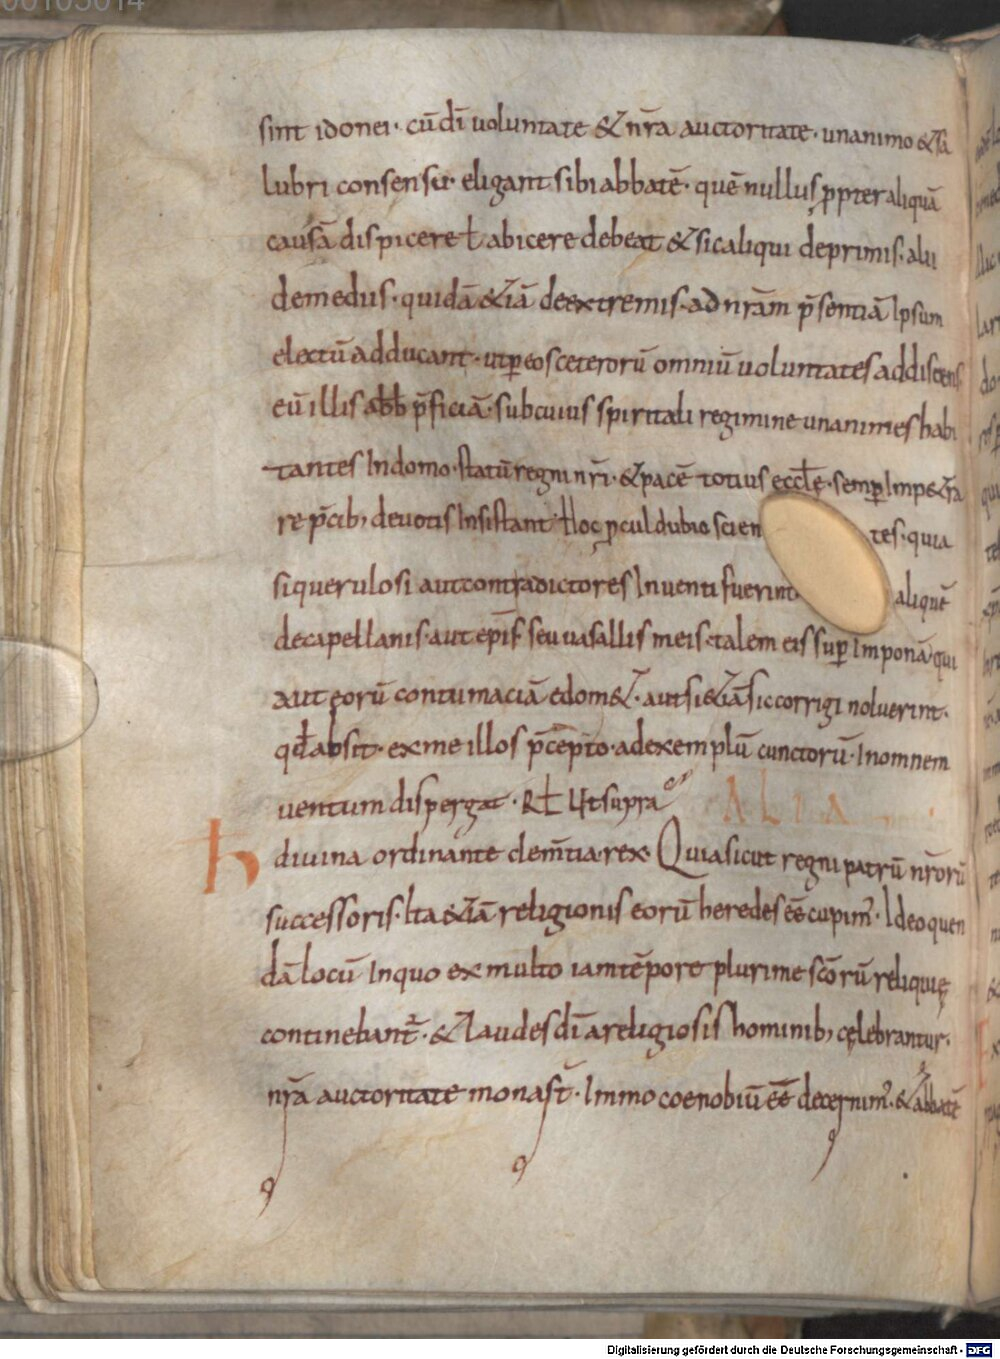 00105014
sint idonei· cū dī uoluntate & nr̄a auctoritate· unanimo & sa
lubri consensu· eligant sibi abbatē· quē nullus ppter aliquā
causā dispicere ł abicere debeat & sic aliqui de primis· alii
de medus· quidā & iā de extremis· ad nr̄am p̄sentiā Ipsum
electū adducant· ut p eos ceterorū omniū uoluntates addiscens
eū illis abb p̄ficiā· sub cuius spiritali regimine unanimes habi
tantes In domo· statū regni nr̄i· & pacē totius eccłę· semp Imp&ra
re p̄cib; deuotis Insistant· Hoc pcul dubio scien tes· quia
si querulosi aut contradictores Inuenti fuerint aliquē
de capellanis· aut ep̄is seu uasallis meis· talem eis sup Imponā· qui
aut eorū contumaciā edom&· aut si & iā sic corrigi noluerint·
qđ absit· ex me illos p̄cepto· ad exemplū cunctorū· In omnem
uentum dispergat· Rł Ut supra
ALIA
h diuina ordinante clem̄tia rex· Quia sicut regni patrū nr̄orū
successoris· Ita & iā religionis eorū heredes eē cupim'· Ideo quen
dā locū In quo ex multo iam tēpore plurime sc̄orū reliquię
continebant̄· & laudes dī a religiosis hominib; cęlebrantur·
nr̄a auctoritate monast̄· Immo coenobiū eē decernim'· & abbatē
Digitalisierung gefördert durch die Deutsche Forschungsgemeinschaft - DFG